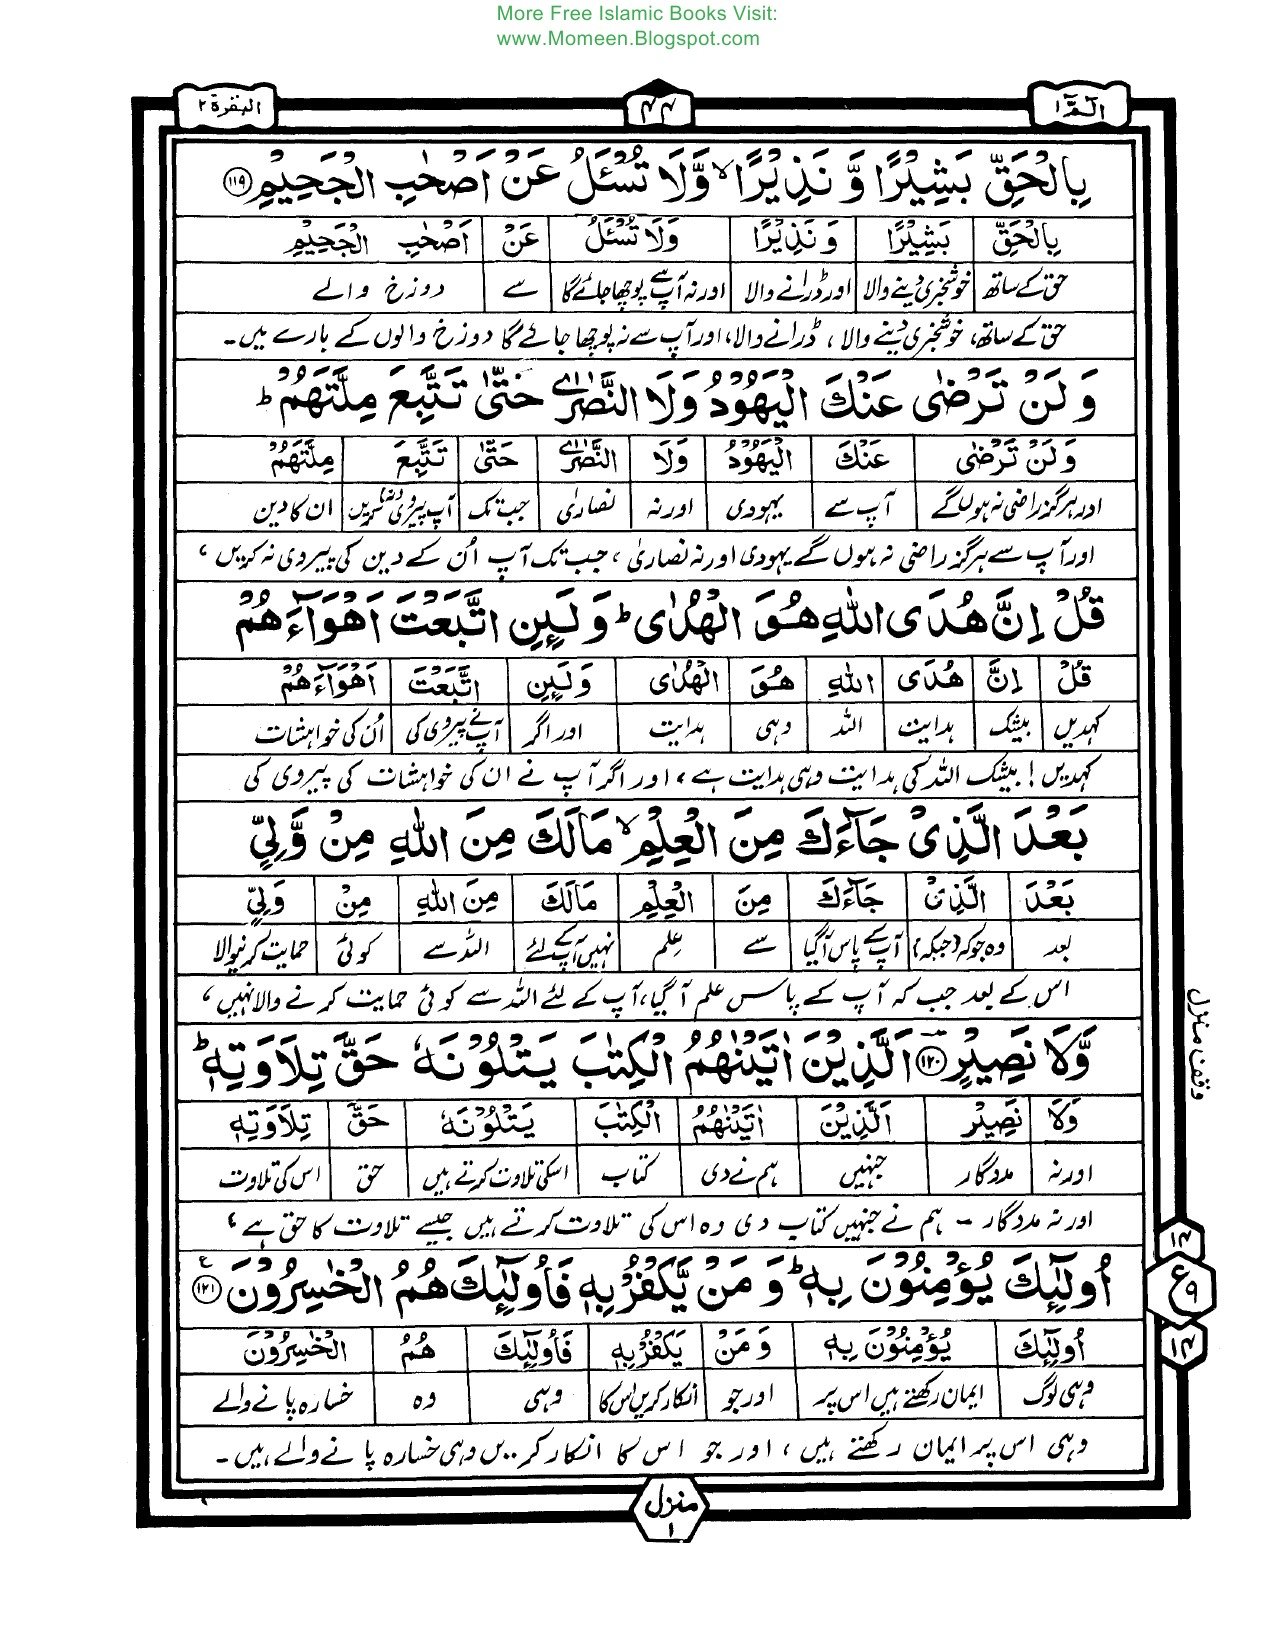 More Free Islamic Books Visit:
www.Momeen.Blogspot.com
الٓمّٓ ١ ۴۴ البقرة ٢
بِالْحَقِّ بَشِيْرًا وَّ نَذِيْرًا ۙ وَّلَا تُسْـَٔلُ عَنْ اَصْحٰبِ الْجَحِيْمِ ﴿۱۱۹﴾
بِالْحَقِّ بَشِيْرًا وَ نَذِيْرًا وَلَا تُسْـَٔلُ عَنْ اَصْحٰبِ الْجَحِيْمِ
حق کے ساتھ خوشخبری دینے والا اور ڈرانے والا اور نہ آپ سے پوچھا جائے گا سے دوزخ والے
حق کے ساتھ، خوشخبری دینے والا، ڈرانے والا، اور آپ سے نہ پوچھا جائے گا دوزخ والوں کے بارے میں۔
وَ لَنْ تَرْضٰى عَنْكَ الْيَهُوْدُ وَلَا النَّصٰرٰى حَتّٰى تَتَّبِعَ مِلَّتَهُمْ ؕ
وَ لَنْ تَرْضٰى عَنْكَ الْيَهُوْدُ وَلَا النَّصٰرٰى حَتّٰى تَتَّبِعَ مِلَّتَهُمْ
اور ہرگز راضی نہ ہوں گے آپ سے یہودی اور نہ نصاریٰ جب تک آپ پیروی نہ کریں ان کا دین
اور آپ سے ہرگز راضی نہ ہوں گے یہودی اور نہ نصاریٰ، جب تک آپ اُن کے دین کی پیروی نہ کریں،
قُلْ اِنَّ هُدَى اللّٰهِ هُوَ الْهُدٰى ؕ وَ لَىِٕنِ اتَّبَعْتَ اَهْوَآءَهُمْ
قُلْ اِنَّ هُدَى اللّٰهِ هُوَ الْهُدٰى وَ لَىِٕنِ اتَّبَعْتَ اَهْوَآءَهُمْ
کہدیں بیشک ہدایت اللہ وہی ہدایت اور اگر آپ نے پیروی کی اُن کی خواہشات
کہدیں! بیشک اللہ کی ہدایت وہی ہدایت ہے، اور اگر آپ نے ان کی خواہشات کی پیروی کی
بَعْدَ الَّذِيْ جَآءَكَ مِنَ الْعِلْمِ ۙ مَا لَكَ مِنَ اللّٰهِ مِنْ وَّلِيٍّ
بَعْدَ الَّذِيْ جَآءَكَ مِنَ الْعِلْمِ مَا لَكَ مِنَ اللّٰهِ مِنْ وَلِيٍّ
بعد وہ جو کہ (جبکہ) آپ کے پاس آگیا سے علم نہیں آپ کے لئے اللہ سے کوئی حمایت کرنیوالا
اس کے بعد جب کہ آپ کے پاس علم آ گیا، آپ کے لئے اللہ سے کوئی حمایت کرنے والا نہیں،
وَّلَا نَصِيْرٍ ﴿۱۲۰﴾ اَلَّذِيْنَ اٰتَيْنٰهُمُ الْكِتٰبَ يَتْلُوْنَهٗ حَقَّ تِلَاوَتِهٖ ؕ
وَلَا نَصِيْرٍ اَلَّذِيْنَ اٰتَيْنٰهُمُ الْكِتٰبَ يَتْلُوْنَهٗ حَقَّ تِلَاوَتِهٖ
اور نہ مددگار جنہیں ہم نے دی کتاب اسکی تلاوت کرتے ہیں حق اس کی تلاوت
اور نہ مددگار ۔ ہم نے جنہیں کتاب دی وہ اس کی تلاوت کرتے ہیں جیسے تلاوت کا حق ہے،
اُولٰٓىِٕكَ يُؤْمِنُوْنَ بِهٖ ؕ وَ مَنْ يَّكْفُرْ بِهٖ فَاُولٰٓىِٕكَ هُمُ الْخٰسِرُوْنَ ﴿۱۲۱﴾ ع
اُولٰٓىِٕكَ يُؤْمِنُوْنَ بِهٖ وَ مَنْ يَكْفُرْ بِهٖ فَاُولٰٓىِٕكَ هُمُ الْخٰسِرُوْنَ
وہی لوگ ایمان رکھتے ہیں اس پر اور جو انکار کریں اس کا وہی وہ خسارہ پانے والے
وہی اس پر ایمان رکھتے ہیں، اور جو اس کا انکار کریں وہی خسارہ پانے والے ہیں۔
وقف منزل
۱۴
ع ۹
۱۴
منزل ۱